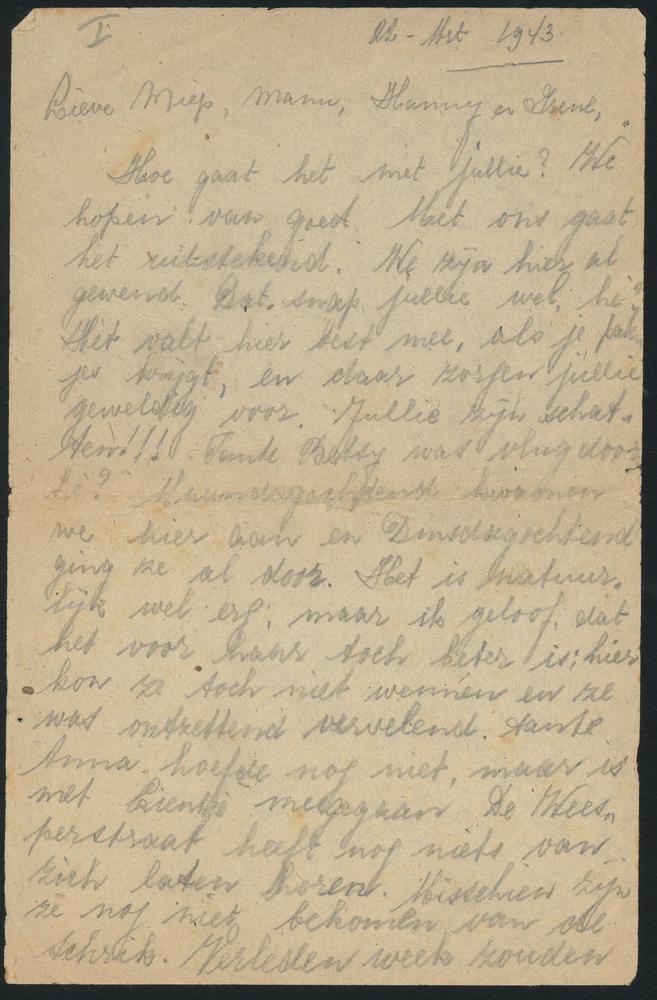 I
22 - Mrt 1943
Lieve Miep, Manu, Hanny en Irene,
Hoe gaat het met jullie? We
hopen van goed. Met ons gaat
het uitstekend. We zijn hier al
gewend. Dat snap jullie wel, hè?
Het valt hier best mee, als je pak-
jes krijgt, en daar zorgen jullie
geweldig voor. Jullie zijn schat-
ten!!! Tante Betsy was vlug door
hè? Maandagochtend kwamen
we hier aan en Dinsdagochtend
ging ze al door. Het is natuur-
lijk wel erg, maar ik geloof, dat
het voor haar toch beter is; hier
kon ze toch niet wennen en ze
was ontzettend vervelend. tante
Anna hoefde nog niet, maar is
met Lientje meegegaan De Wees-
perstraat heeft nog niets van
zich laten horen. Misschien zijn
ze nog niet bekomen van de
schrik. Verleden week zouden